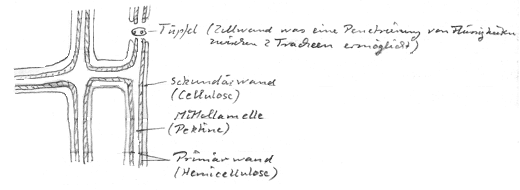 Tüpfel (Zellwand was eine Penetrierung von Flüssigkeiten
zwischen 2 Tracheen ermöglicht)
Sekundärwand
(Cellulose)
Mittellamelle
(Pektine)
Primärwand
(Hemicellulose)